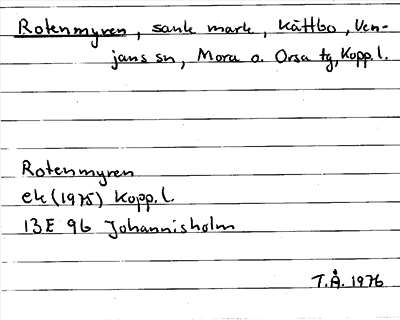 Rotenmyren, sank mark, Kättbo, Ven-
jans sn, Mora o. Orsa tg, Kopp. l.
Rotenmyren
ek (1975) Kopp. l.
13E 9b Johannisholm
T.Å. 1976